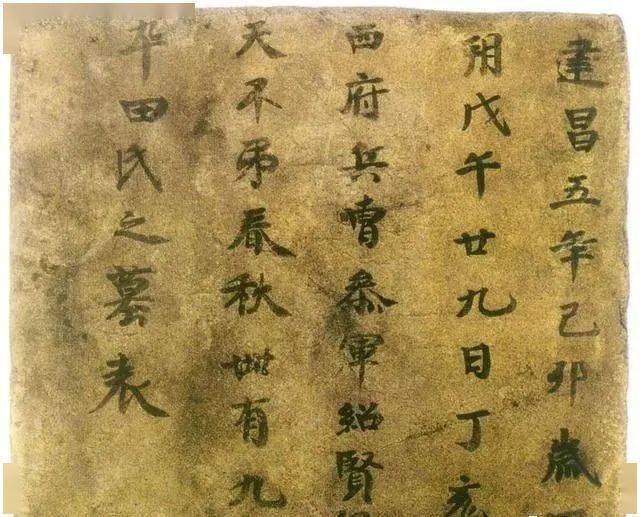 建昌五年己卯歲
朔戊午廿九日丁亥
西府兵曹叅軍紹賢
天不弔春秋卌有九
卒田氏之墓表